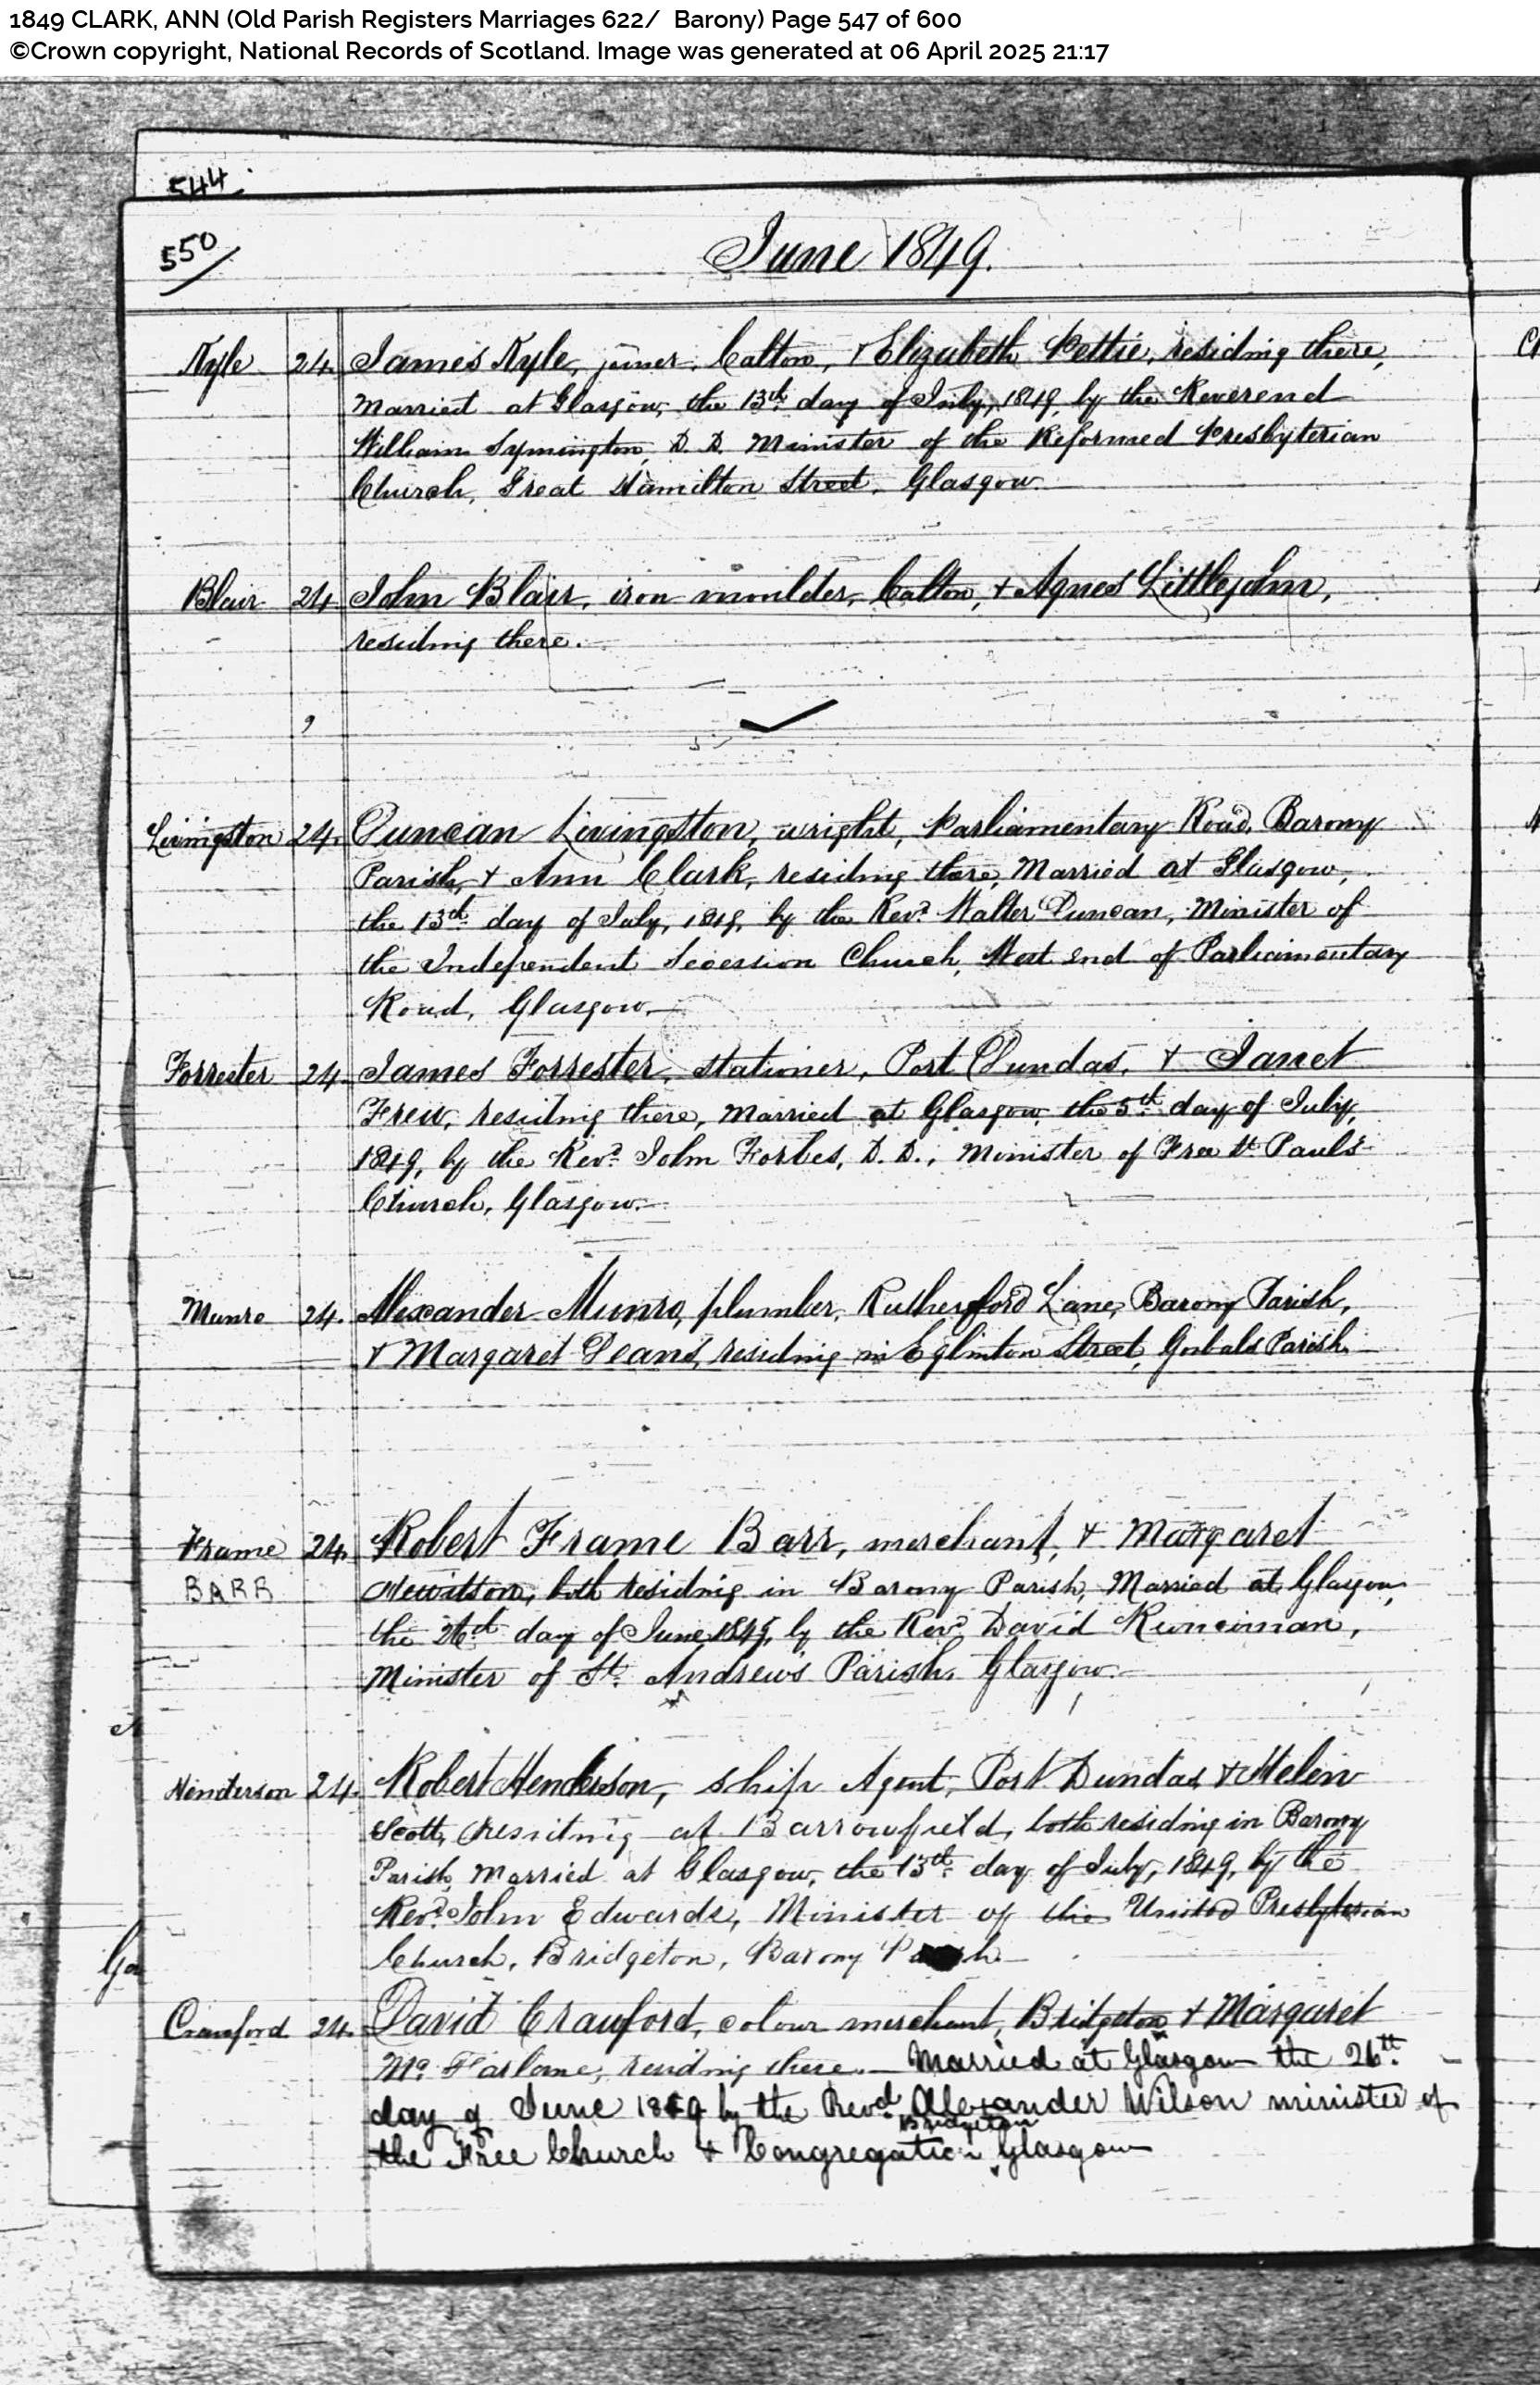 1849 CLARK, ANN (Old Parish Registers Marriages 622/ Barony) Page 547 of 600
©Crown copyright, National Records of Scotland. Image was generated at 06 April 2025 21:17
544
550
June 1849.
Kyle 24. James Kyle, joiner, Calton, & Elizabeth Pettie, residing there,
Married at Glasgow, the 13th day of July, 1849, by the Reverend
William Symington, D. D. Minister of the Reformed Presbyterian
Church, Great Hamilton Street, Glasgow.
Blair 24 John Blair, iron moulder, Calton, & Agnes Littlejohn,
residing there.
Livingston 24. Duncan Livingston, wright, Parliamentary Road, Barony
Parish, & Ann Clark, residing there, Married at Glasgow,
the 13th day of July, 1849, by the Revd. Walter Duncan, Minister of
the Independent Secession Church, West End of Parliamentary
Road, Glasgow.
Forrester 24. James Forrester, stationer, Port Dundas, & Janet
Frew, residing there, Married at Glasgow, the 5th day of July,
1849, by the Revd. John Forbes, D. D., Minister of Free St Paul's
Church, Glasgow.
Munro 24. Alexander Munro, plumber, Rutherford Lane, Barony Parish,
& Margaret Deans, residing in Eglinton Street, Gorbals Parish.
Frame 24. Robert Frame Barr, merchant, & Margaret
BARR Hewitson, both residing in Barony Parish, Married at Glasgow,
the 26th day of June 1849, by the Revd. David Runciman,
Minister of St. Andrew's Parish, Glasgow.
Henderson 24. Robert Henderson, ship Agent, Port Dundas, & Helen
Scott, residing at Barrowfield, both residing in Barony
Parish, Married at Glasgow, the 13th day of July, 1849, by the
Revd. John Edwards, Minister of the United Presbyterian
Church, Bridgeton, Barony Parish.
Crawford 24. David Crawford, colour merchant, Bridgeton & Margaret
Mc. Farlane, residing there. Married at Glasgow the 26th
day of June 1849 by the Revd Alexander Wilson minister of
Bridgeton
the Free Church & Congregation Glasgow